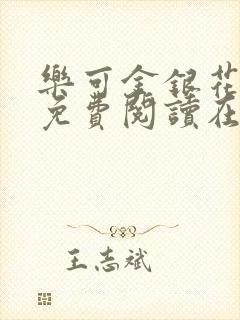 樂可金銀花
免費閱讀在
王志斌